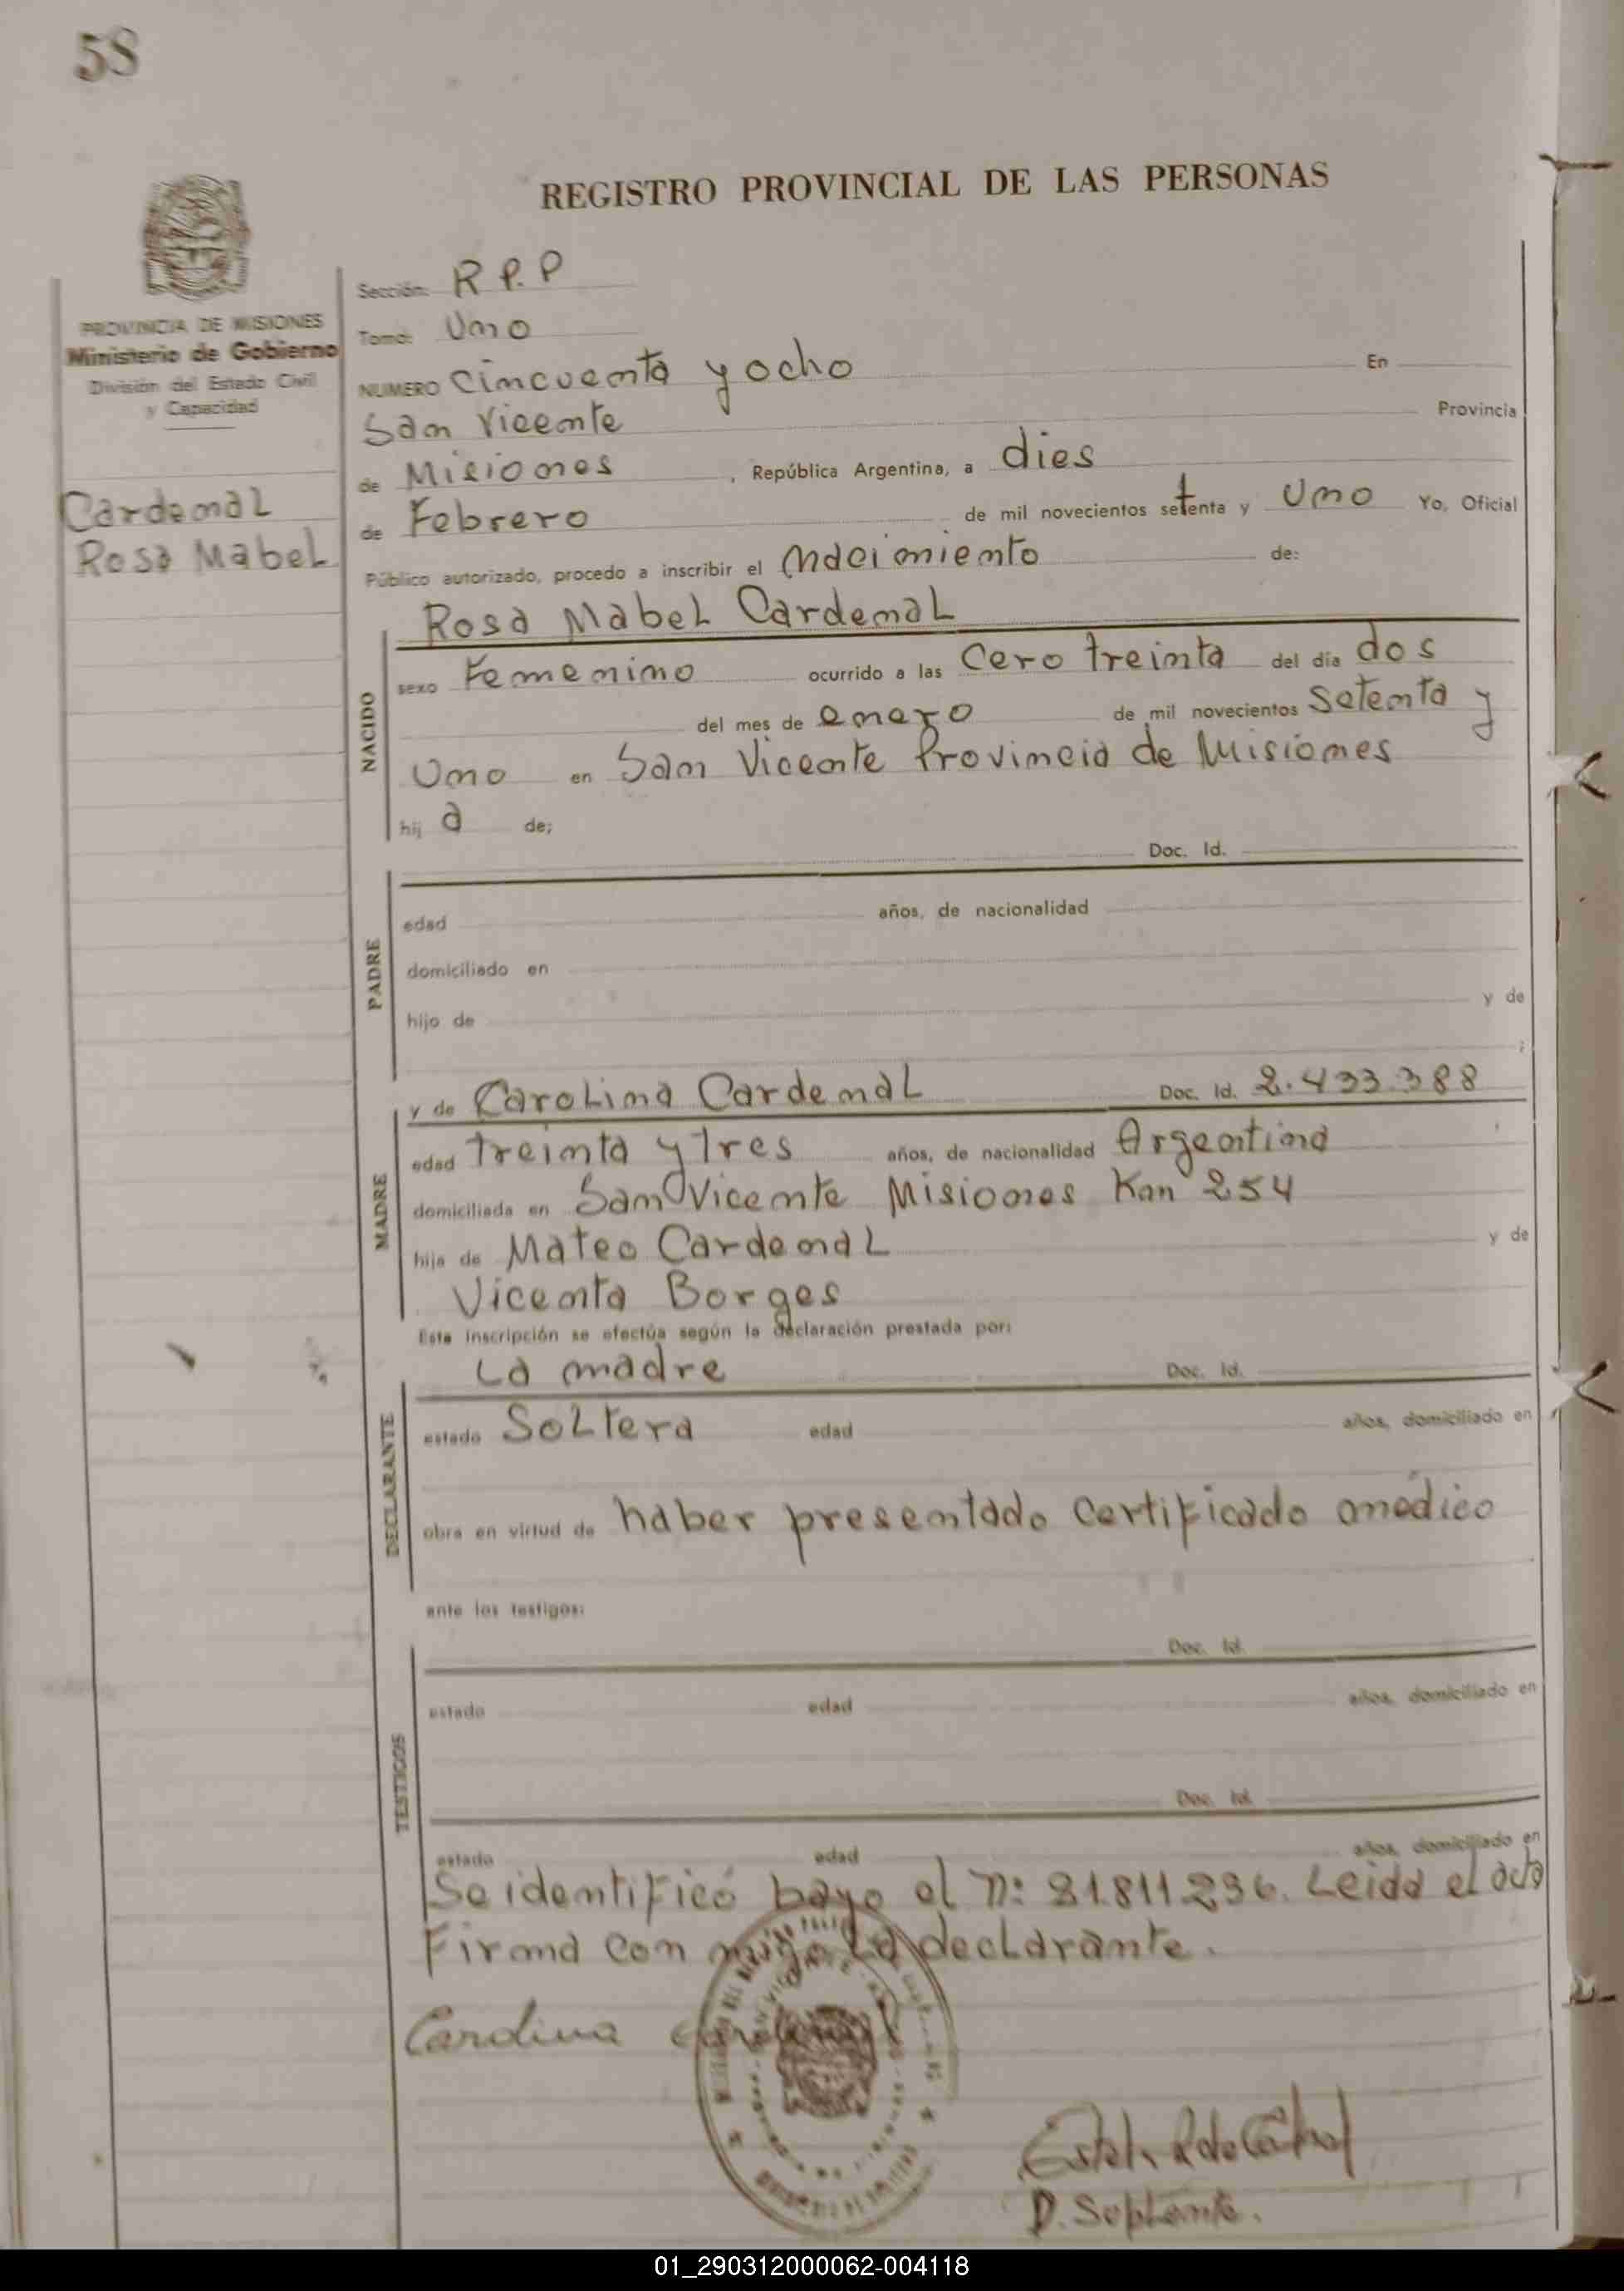 58
REGISTRO PROVINCIAL DE LAS PERSONAS
PROVINCIA DE MISIONES
Ministerio de Gobierno
División del Estado Civil
y Capacidad
Cardenal
Rosa Mabel
Sección: R P. P
Tomo: Uno
NUMERO Cincuenta y ocho En
San Vicente Provincia
de Misiones, República Argentina, a dies
de Febrero de mil novecientos setenta y Uno Yo, Oficial
Público autorizado, procedo a inscribir el nacimiento de:
Rosa Mabel Cardenal
NACIDO
sexo Femenino ocurrido a las Cero treinta del día dos
del mes de enero de mil novecientos Setenta y
Uno en San Vicente Provincia de Misiones
hij a de;
Doc. Id.
PADRE
edad años, de nacionalidad
domiciliado en
hijo de y de
;
MADRE
y de Carolina Cardenal Doc. Id. 2.433.388
edad treinta y tres años, de nacionalidad Argentina
domiciliada en San Vicente Misiones Km 254
hija de Mateo Cardenal y de
Vicenta Borges
Esta inscripción se efectúa según la declaración prestada por:
La madre Doc. Id.
DECLARANTE
estado Soltera edad años, domiciliado en
obra en virtud de haber presentado Certificado médico
ante los testigos:
Doc. Id.
TESTIGOS
estado edad años, domiciliado en
Doc. Id.
estado edad años, domiciliado en
Se identificó bajo el n: 21.811.236. Leida el acta
Firma con migo La declarante.
Carolina Cardenal
D. Suplente.
01_290312000062-004118